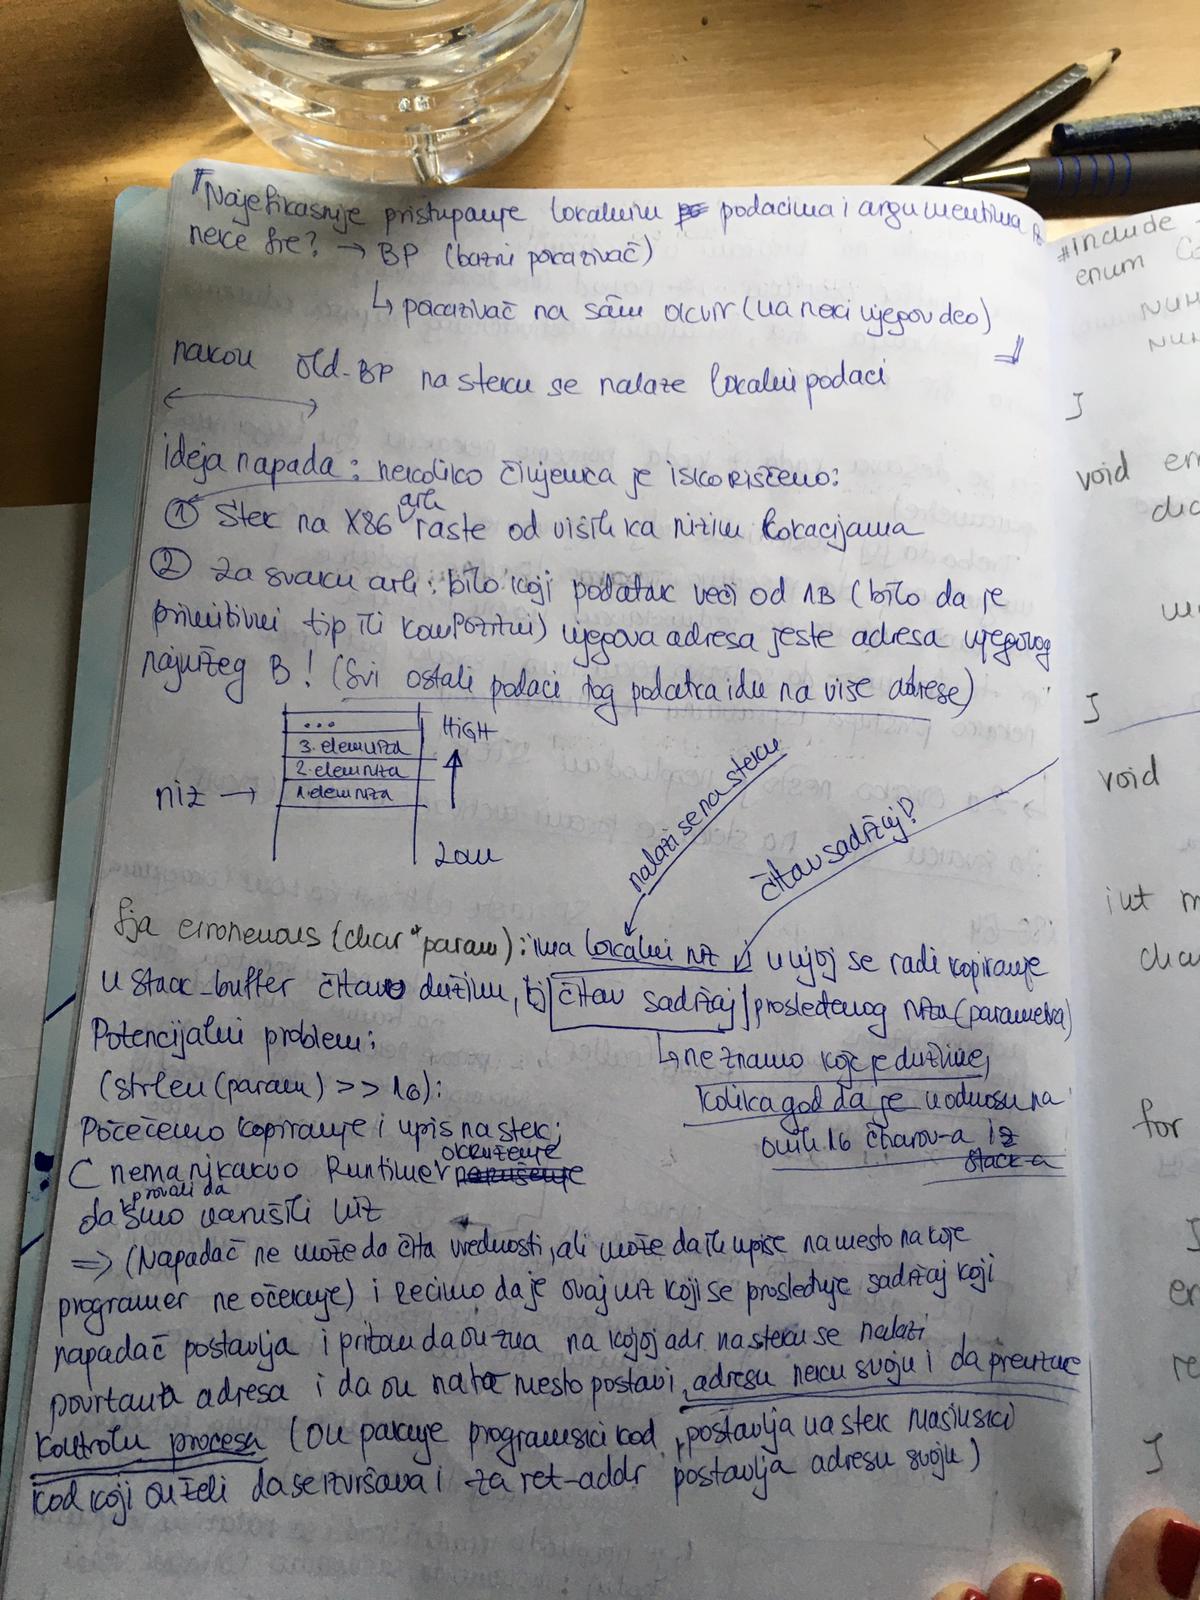 Najefikasnije pristupanje lokalnim podacima i argumentima
neke fje? → BP (bazni pokazivač)
↳ pokazivač na sâm okvir (na neki njegov deo)
nakon old-BP na steku se nalaze lokalni podaci
ideja napada: nekoliko činjenica je iskorišćeno:
① Stek na X86 arh raste od viših ka nižim lokacijama
② za svaku arh: bilo koji podatak veći od 1B (bilo da je
primitivni tip ili kompozitni) njegova adresa jeste adresa njegovog
najnižeg B! (svi ostali podaci tog podatka idu na više adrese)
...
HIGH
3. elem niza
2. elem niza
niz → 1. elem niza
LOW
nalazi se na steku
čitav sadržaj?
fja erroneuous (char *param): ima lokalni niz u njoj se radi kopiranje
u stack_buffer čitavu dužinu, tj čitav sadržaj prosleđenog niza (parametra)
Potencijalni problem:
↳ ne znamo koje je dužine,
(strlen(param) >> 16):
kolika god da je u odnosu na
Počećemo kopiranje i upis na stek;
onih 16 charov-a iz
stack-a
C nema nikakvo Runtime okruženje
da provali da smo narušili niz
⇒ (Napadač ne može da čita vrednosti, ali može da ih upiše na mesto na koje
programer ne očekuje) i recimo da je ovaj niz koji se prosleđuje sadržaj koji
napadač postavlja i pritom da on zna na kojoj adr. na steku se nalazi
povrtana adresa i da on na to mesto postavi, adresu neku svoju i da preuzme
kontrolu procesa (on pakuje programski kod, postavlja na stek mašinski
kod koji on želi da se izvršava i za ret-addr postavlja adresu svoju)
#include
enum
NUM
NUM
}
void
}
void
int m
cha
for
}
re
}